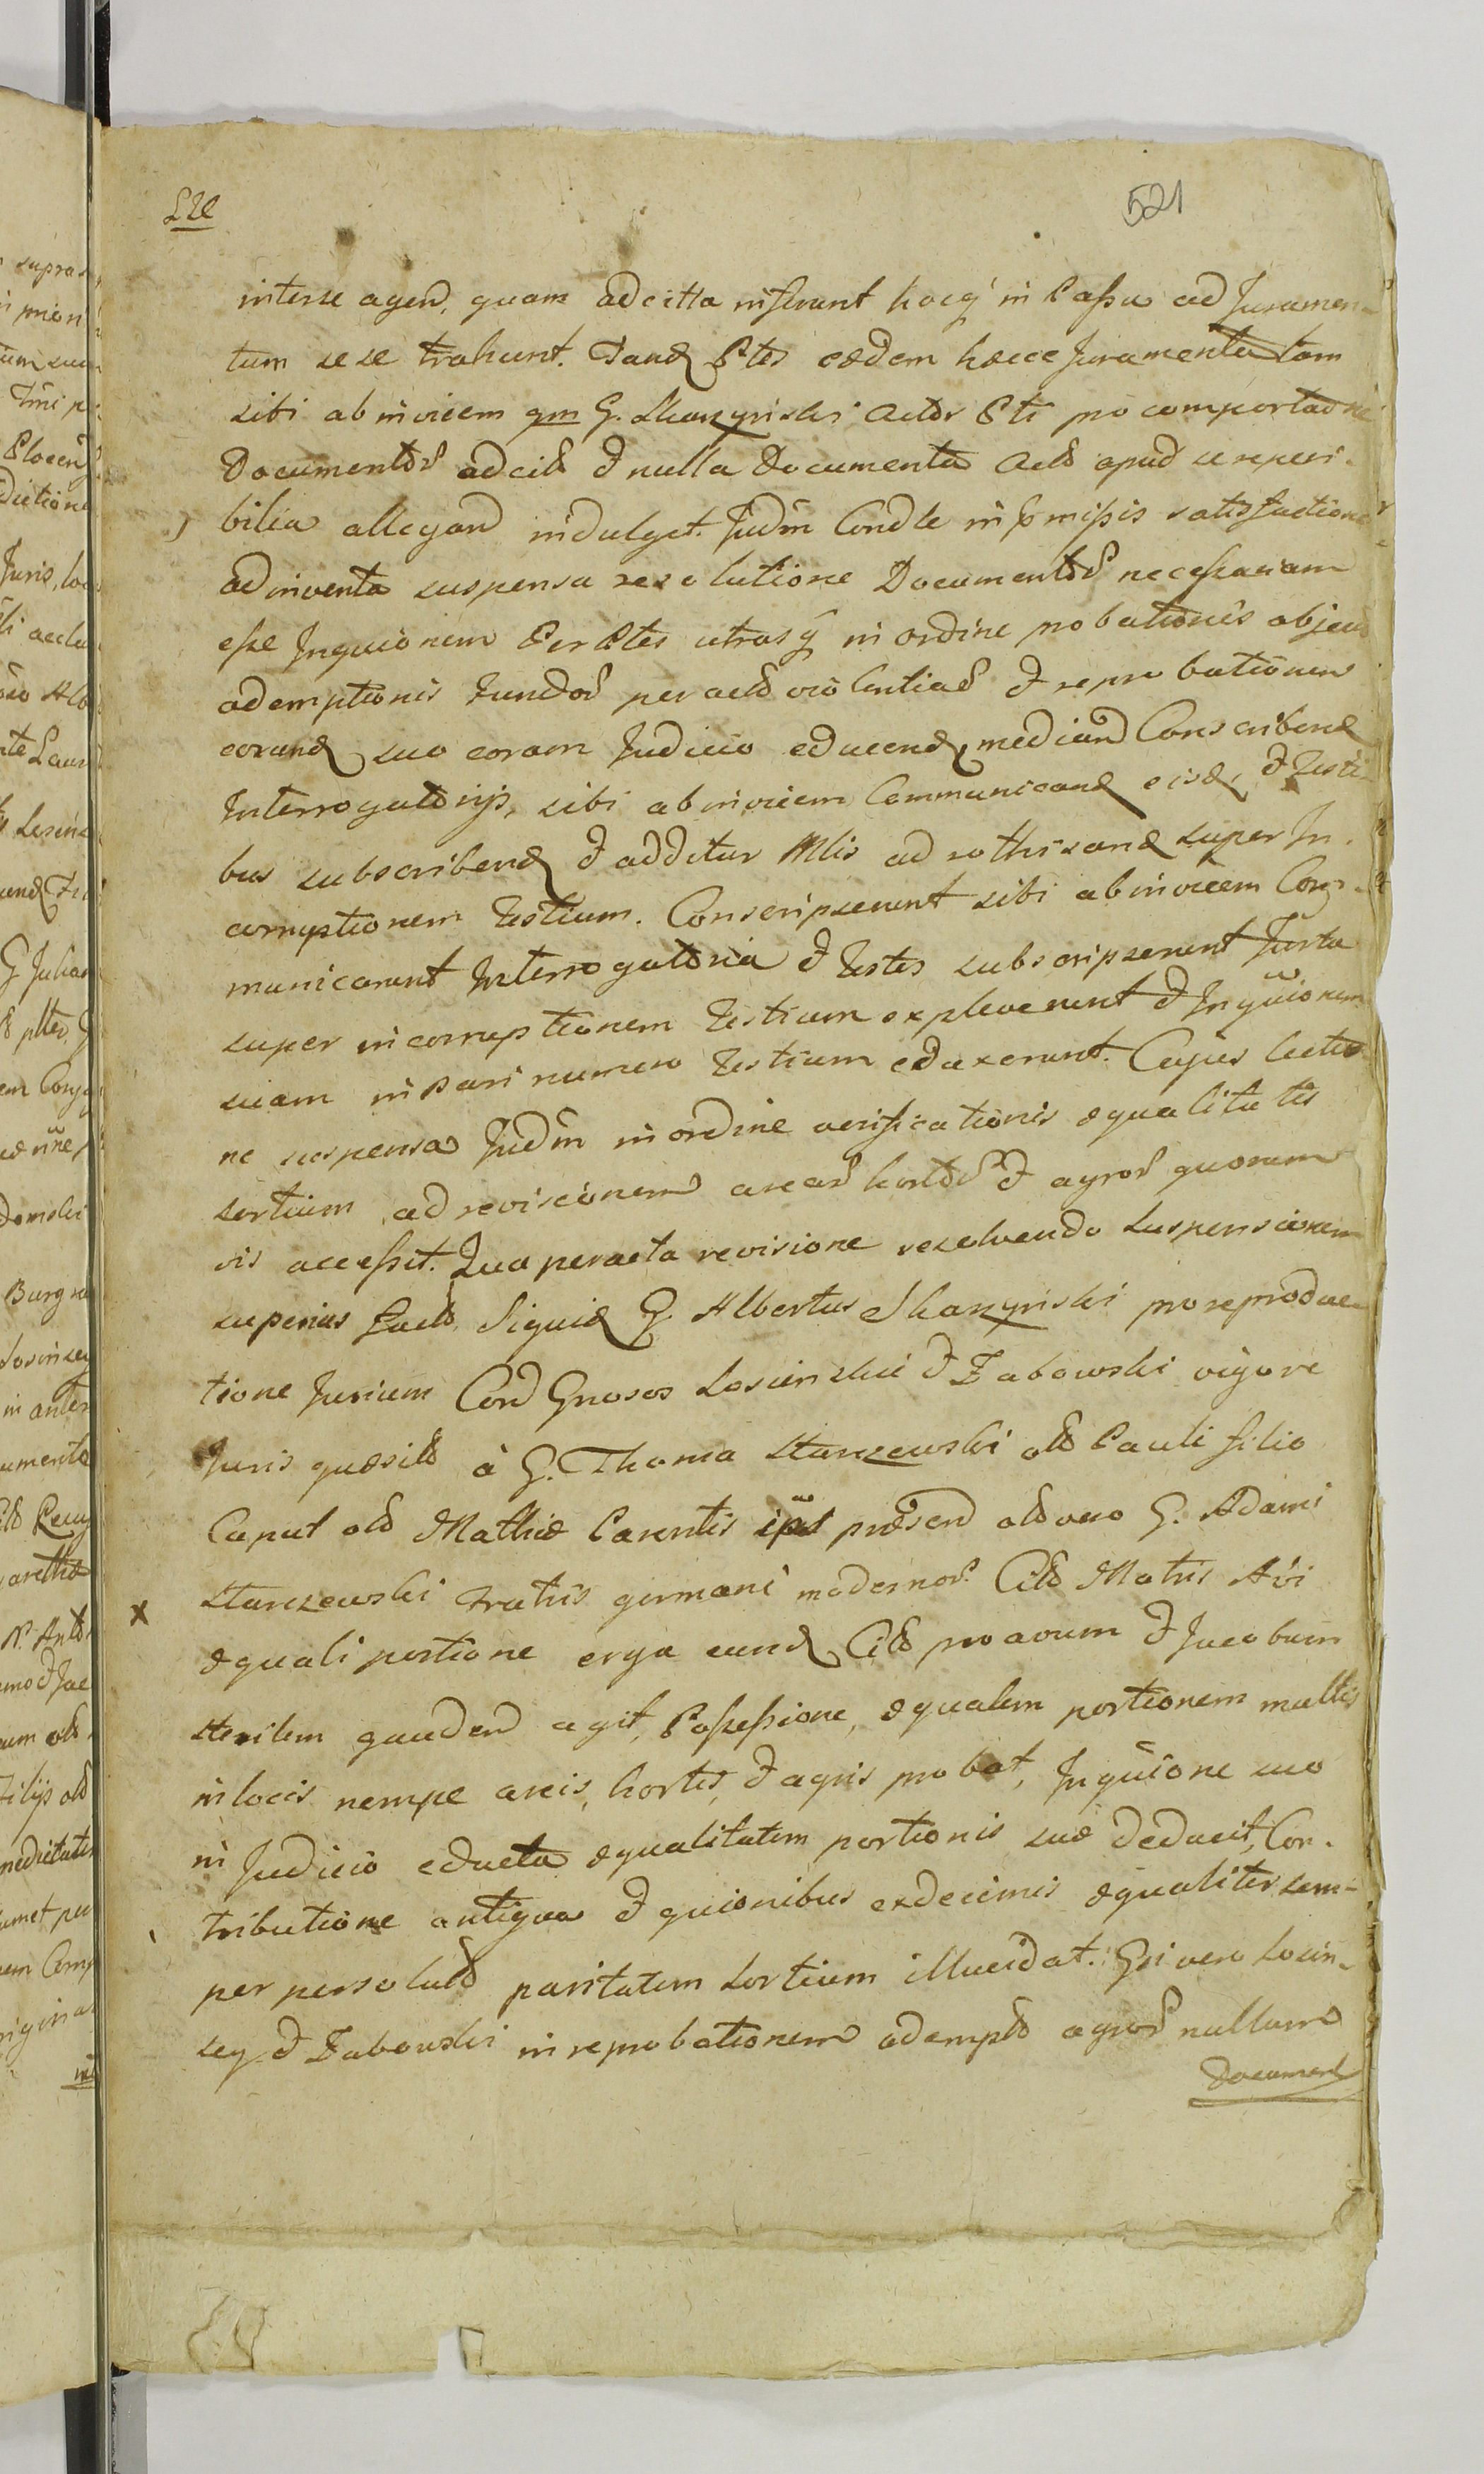 521
interse agend, quam adcitta inferunt hocq in Casu ad Juramen-
tum sese trahunt. Tand Ptes eædem hæcce Juramenta tam
sibi ab invicem qm G. Skarzynski Actor Pti pro comportaōne
Documentor adcit & nulla Documenta act apud se reperi-
bilia allegand indulget. Judm Condle in pmissis satisfactione
adinventa suspensa resolutione Documentor necessariam
esse Inquionem Per Ptes utrasq in ordine probationis object
ademptionis fundor per act violentias & reprobationem
eorund suo coram Judicio educend, mediand Conscribend
Interrogatorijs, sibi ab invicem Communicand eisd, & Testi-
bus subscribend & additur Mlis ad rothisand super In-
corruptionem Testium. Conscripserunt sibi abinvicem Com-
municarunt Interrogatoria & Testes subscripserunt Jurta
super incorruptionem Testium expleverunt & Inquionem
suam in pari numero Testium eduxerunt. Cujus lectio-
ne suspensa Judm in ordine verificationis æqualitatis
sortium ad revisionem arear hortor & agror quorum-
vis accessit. Qua peracta revisione resolvendo suspensionem
superius fact Siquid G. Albertus Skarzynski pro reproduc-
tione Jurium Cord Gnosos Losinskie & Zabowski vigore
Juris quæsit à G. Thoma Starzewski ol Pauli filio
Caput ol Mathiæ Parentis ips præsend ol vero G. Adami
Starczewski Fratris germani modernor Cit Matris Avi
æquali portione erga eund Cit proavum & Jacobum
sterilem gauden agit, Possessione, æqualem portionem multis
in locis nempe areis, hortis, & agris probat, Inquione suo
in Judicio educta æqualitatem portionis suæ deducit, Con-
tributione antiqua & quionibus ex decimis æqualiter sem-
per persolut paritatem sortium illucidat. Gsi vero Losin-
scy & Zabowski in reprobationem adempt agror nullum
Document